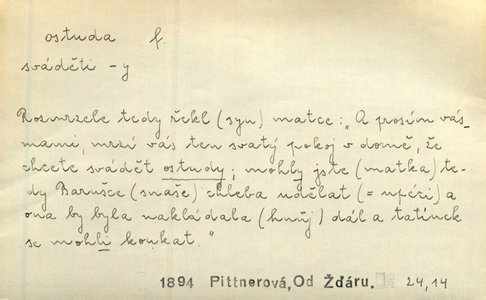 ostuda f.
sváděti -y
Rozmrzele tedy řekl (syn) matce: „A prosím vás,
mami, mrzí vás ten svatý pokoj v domě, že
chcete svádět ostudy; mohly jste (matka) te-
dy Barušce (snaše) chleba udělat (= upéci) a
ona by byla nakládala (hnůj) dál a tatínek
se mohli koukat."
1894 Pittnerová, Od Žďáru. 24,14